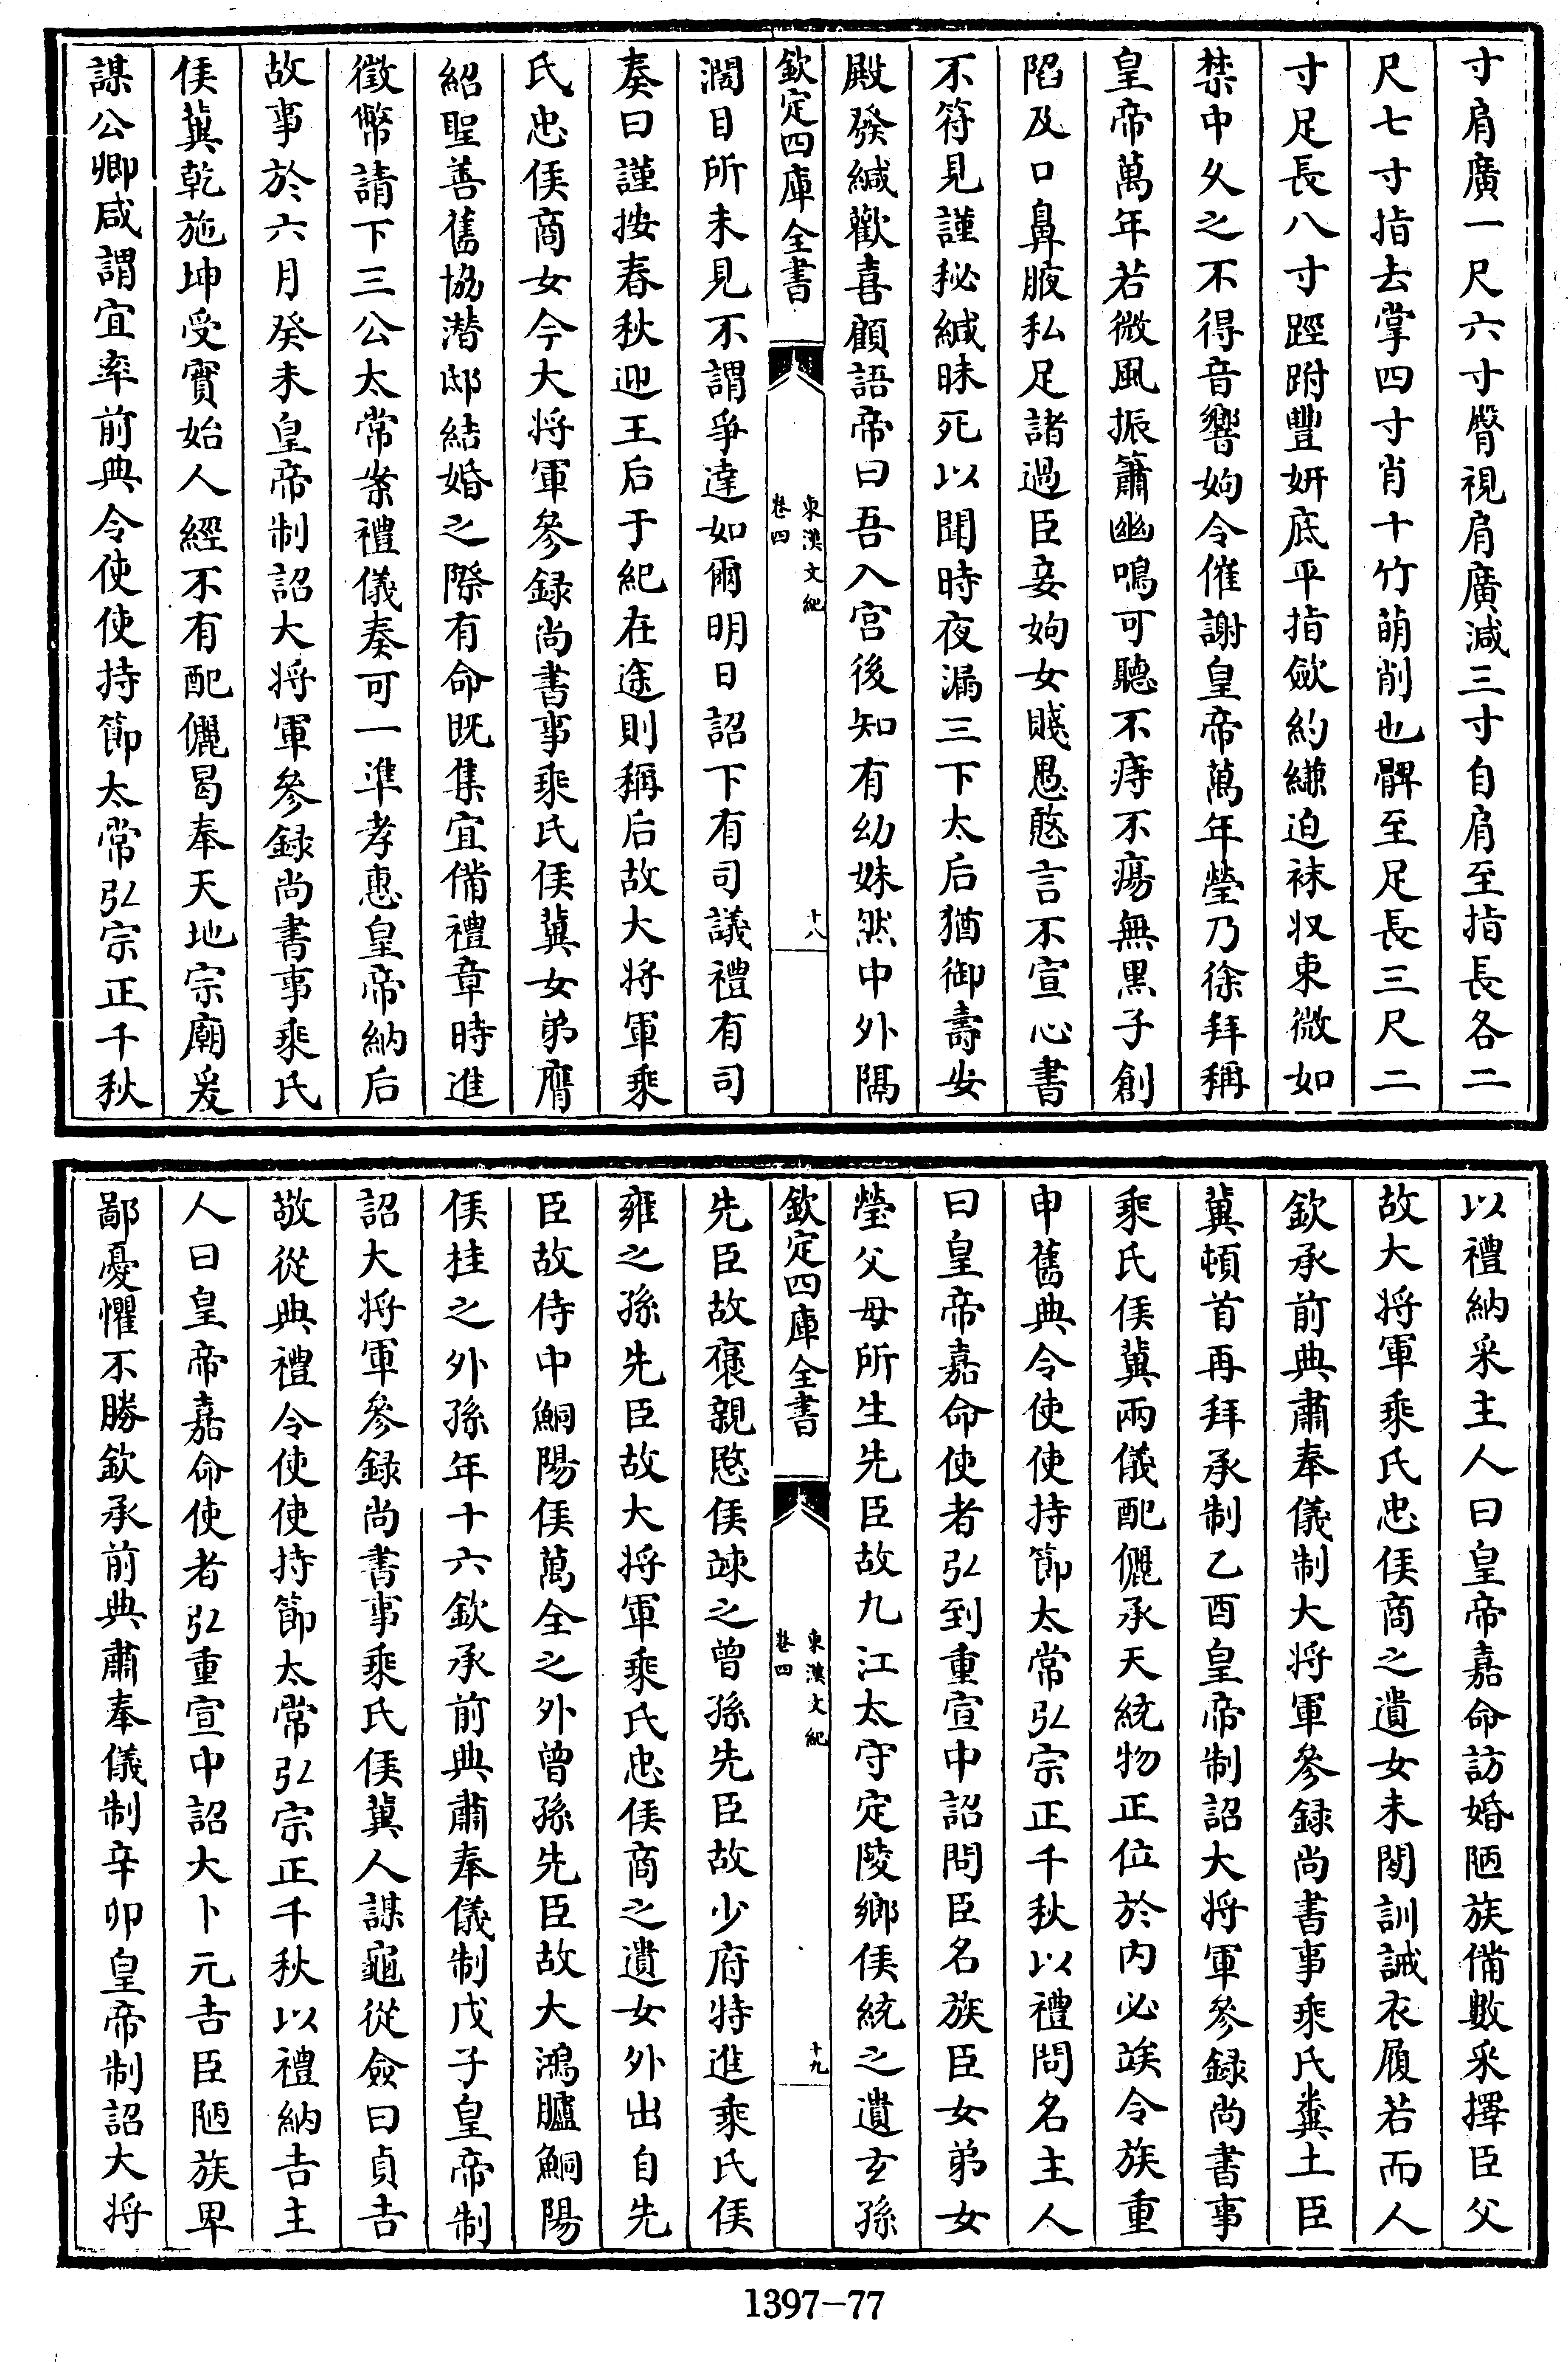 寸肩廣一尺六寸臀視肩廣減三寸自肩至指長各二
尺七寸指去掌四寸肖十竹萌削也髀至足長三尺二
寸足長八寸踁跗豐妍底平指斂約縑迫袜収束微如
禁中久之不得音響姁令催謝皇帝萬年瑩乃徐拜稱
皇帝萬年若微風振簫幽鳴可聽不痔不瘍無黒子創
陷及口鼻腋私足諸過臣妾姁女賤愚憨言不宣心書
不符見謹秘緘昧死以聞時夜漏三下太后猶御壽安
殿發緘歡喜顧語帝曰吾入宫後知有幼妹然中外隔
欽定四庫全書
東漢文紀
卷四
十八
濶目所未見不謂爭達如爾明日詔下有司議禮有司
奏曰謹按春秋迎王后于紀在途則稱后故大将軍乘
氏忠侯商女今大将軍參録尚書事乘氏侯冀女弟膺
紹聖善舊協潜邸結婚之際有命既集宜備禮章時進
徵幣請下三公太常案禮儀奏可一準孝惠皇帝納后
故事於六月癸未皇帝制詔大将軍參録尚書事乘氏
侯冀乾施坤受寳始人經不有配儷曷奉天地宗廟爰
謀公卿咸謂宜率前典令使使持節太常弘宗正千秋
以禮納采主人曰皇帝嘉命訪婚陋族備數采擇臣父
故大将軍乘氏忠侯商之遺女未閑訓誡衣履若而人
欽承前典肅奉儀制大将軍參録尚書事乘氏糞土臣
冀頓首再拜承制乙酉皇帝制詔大将軍參録尚書事
乘氏侯冀兩儀配儷承天統物正位於内必竢令族重
申舊典令使使持節太常弘宗正千秋以禮問名主人
曰皇帝嘉命使者弘到重宣中詔問臣名族臣女弟女
瑩父母所生先臣故九江太守定陵鄉侯統之遺玄孫
欽定四庫全書
東漢文紀
卷四
十九
先臣故褒親愍侯竦之曾孫先臣故少府特進乘氏侯
雍之孫先臣故大将軍乘氏忠侯商之遺女外出自先
臣故侍中鮦陽侯萬全之外曾孫先臣故大鴻臚鮦陽
侯桂之外孫年十六欽承前典肅奉儀制戊子皇帝制
詔大将軍參録尚書事乘氏侯冀人謀龜從僉曰貞吉
敬從典禮令使使持節太常弘宗正千秋以禮納吉主
人曰皇帝嘉命使者弘重宣中詔大卜元吉臣陋族卑
鄙憂懼不勝欽承前典肅奉儀制辛卯皇帝制詔大将
1397-77